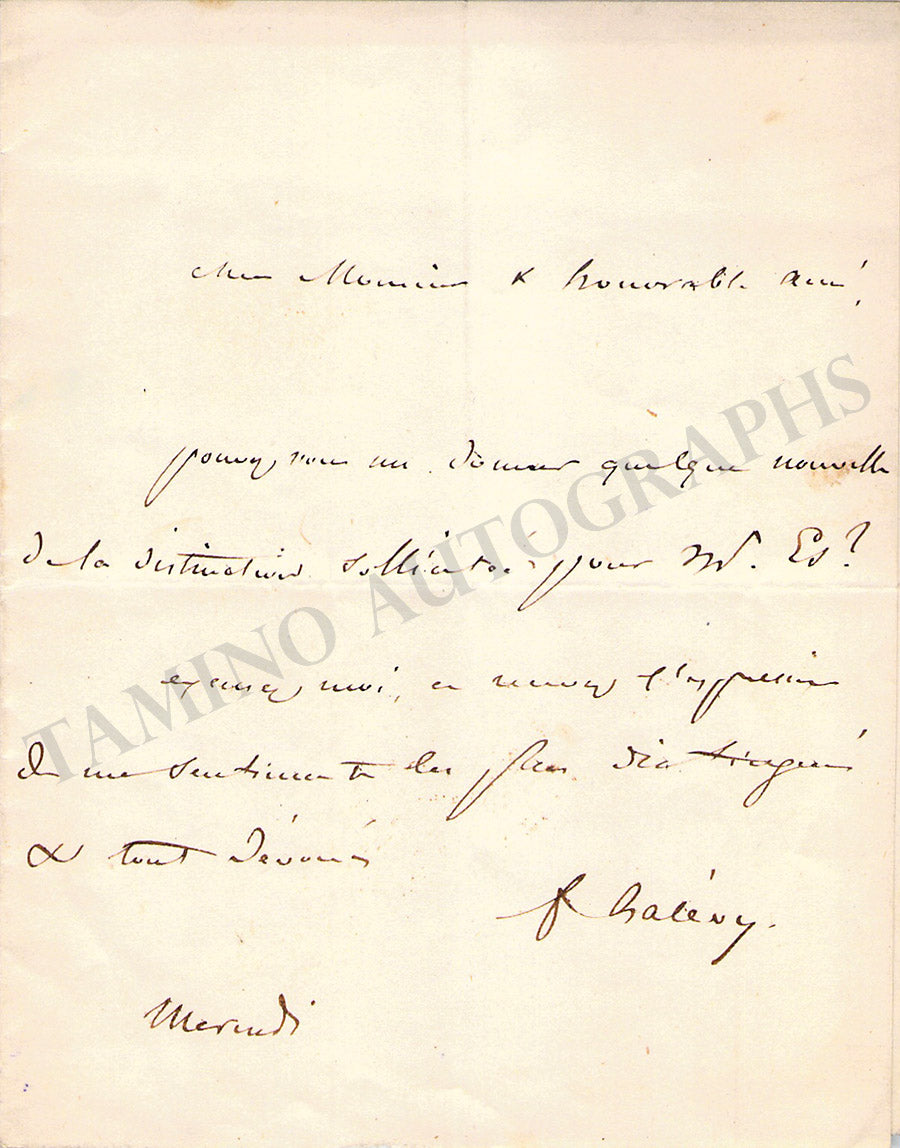 Cher Monsieur & honorable ami,
pouvez vous me donner quelque nouvelle
de la distinction sollicitée pour M. Es?
excusez moi, et recevez l'expression
de mes sentiments les plus distingués
& tout dévoués
F Halévy.
Mercredi
TAMINO AUTOGRAPHS